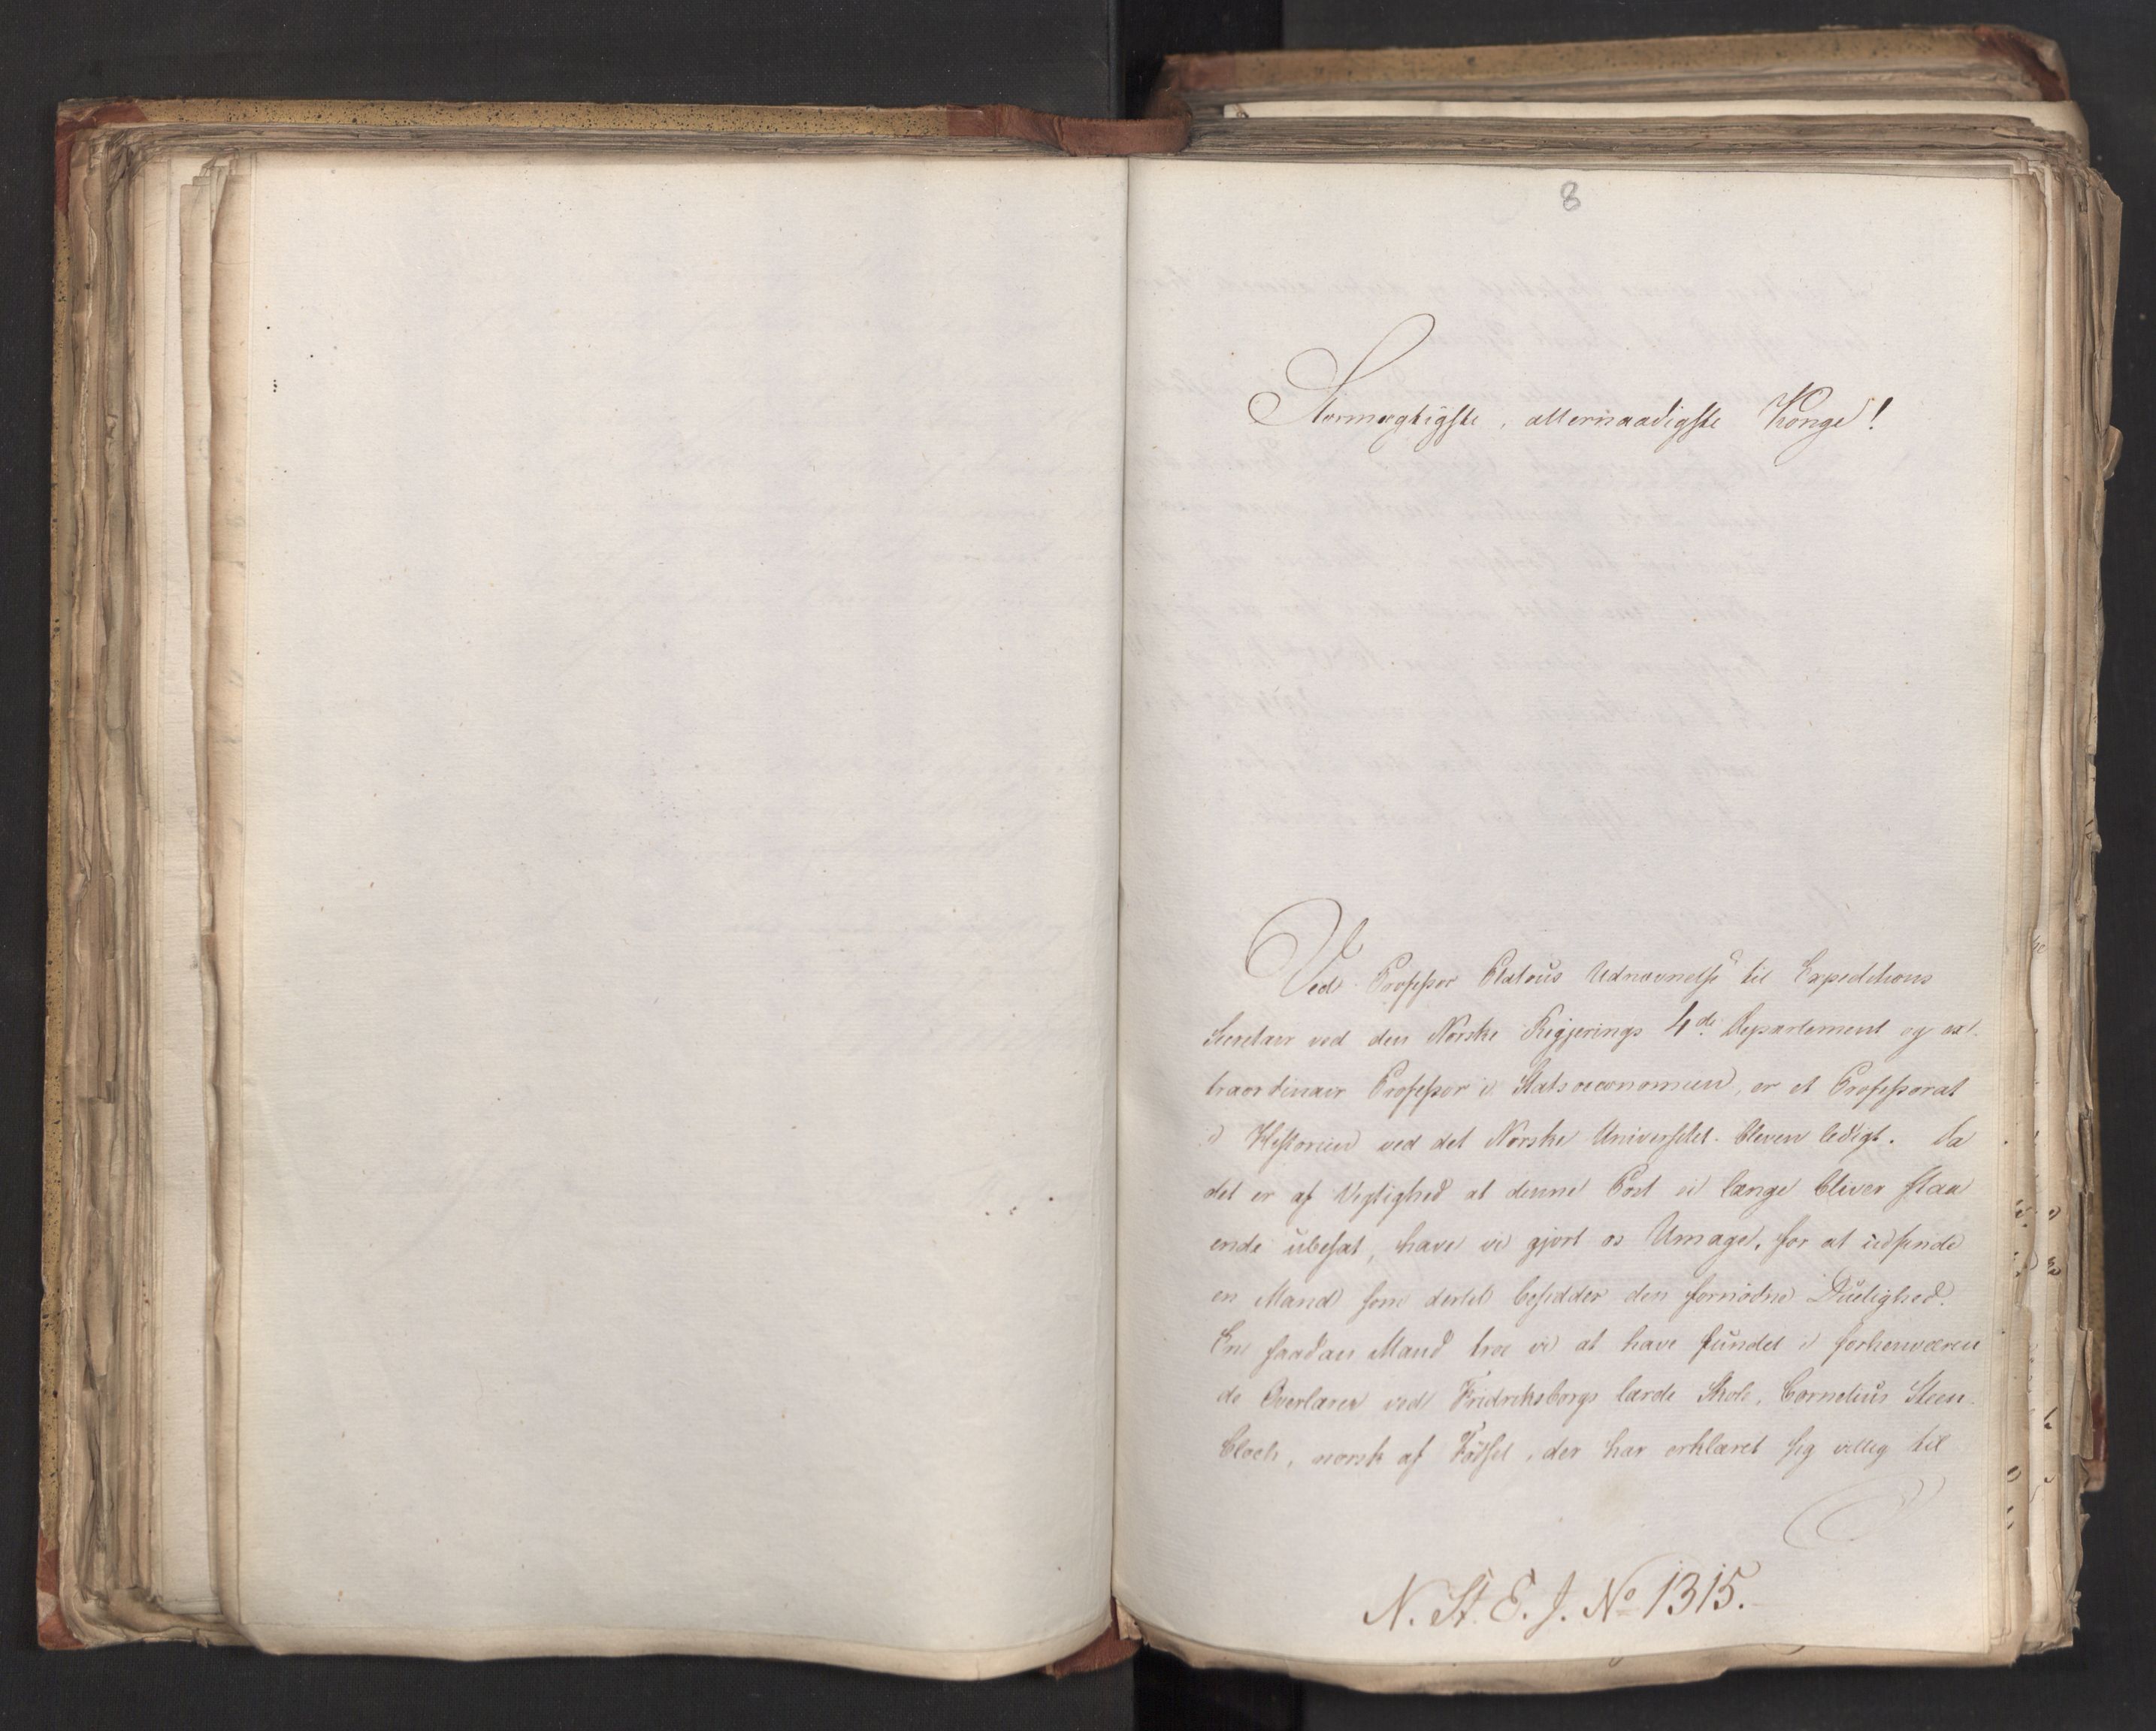 8
Stormægtigste, allernaadigste Konge!
Ved Professor Platous Udnævnelse til Expeditions
Secretair ved den Norske Regjerings 4de Departement og ext
traordinair Professor i Statsoeconomien, er et Professorat
i Historien ved det Norske Universitet bleven ledigt. Da
det er af Vigtighed at denne Post ei længe bliver staa
ende ubesat, have vi gjort os Umage, for at udfinde
en Mand som dertil besidder den fornødne Duelighed.
En saadan Mand troe vi at have fundet i forhenværen
de Overlærer ved Fridriksborgs lærde Skole, Cornelius Steen
bloch, norsk af Fødsel, der har erklæret sig villig til
N. St. E. J. No 1315.